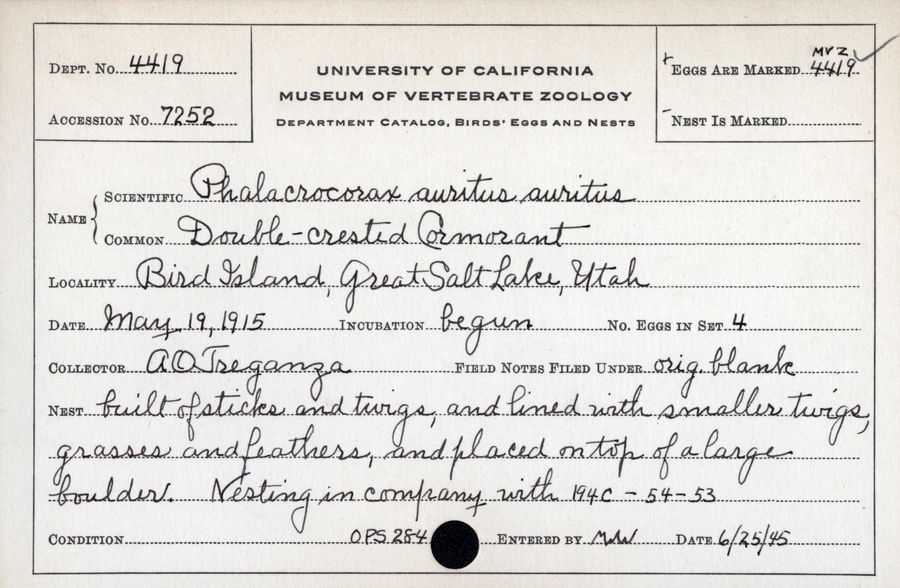 Dept. No. 4419
Accession No. 7252
UNIVERSITY OF CALIFORNIA
MUSEUM OF VERTEBRATE ZOOLOGY
Department Catalog, Birds' Eggs and Nests
MVZ
+ Eggs Are Marked 4419
- Nest Is Marked
Name { Scientific Phalacrocorax auritus auritus
Common Double-crested Cormorant
Locality Bird Island, Great Salt Lake, Utah
Date May 19, 1915 Incubation begun No. Eggs in Set 4
Collector A O Treganza Field Notes Filed Under orig. blank
Nest built of sticks and twigs, and lined with smaller twigs,
grasses and feathers, and placed on top of a large
boulder. Nesting in company with 194c - 54-53
Condition OPS 284 Entered by Date 6/25/45